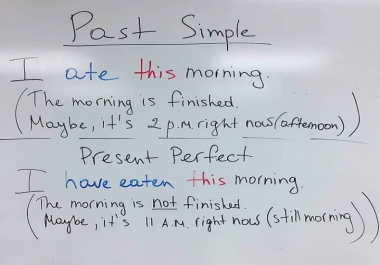 Past Simple
I ate this morning.
(The morning is finished.
Maybe, it's 2 p.m. right now (afternoon))
Present Perfect
I have eaten this morning.
(The morning is not finished.
Maybe, it's 11 A.M. right now (still morning))